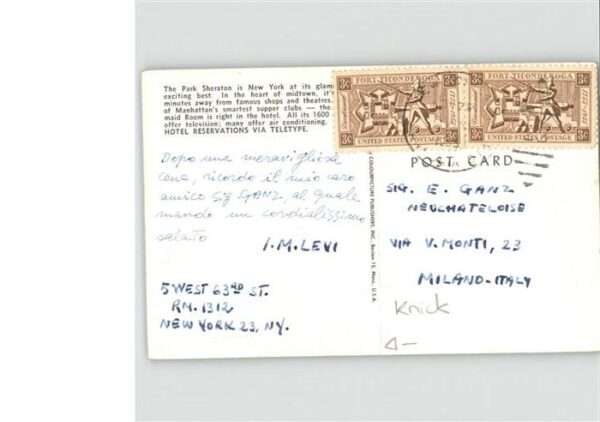 The Park Sheraton is New York at its glam
exciting best. In the heart of midtown, it's
minutes away from famous shops and theatres.
of Manhattan's smartest supper clubs — the
maid Room is right in the hotel. All its 1600
offer television; many offer air conditioning.
HOTEL RESERVATIONS VIA TELETYPE.
Dopo una meravigliosa
cena, ricordo il mio caro
amico Sig GANZ, al quale
mando un cordialissimo
saluto
I. M. LEVI
5 WEST 63RD ST.
RM. 1312
NEW YORK 23, NY.
COLOURPICTURE PUBLISHERS, INC., Boston 15, Mass., U.S.A.
FORT TICONDEROGA
3¢ 3¢
UNITED STATES POSTAGE
FORT TICONDEROGA
3¢ 3¢
UNITED STATES POSTAGE
POST CARD
SIG. E. GANZ
NEUCHATELOISE
VIA V. MONTI, 23
MILANO-ITALY
Knick